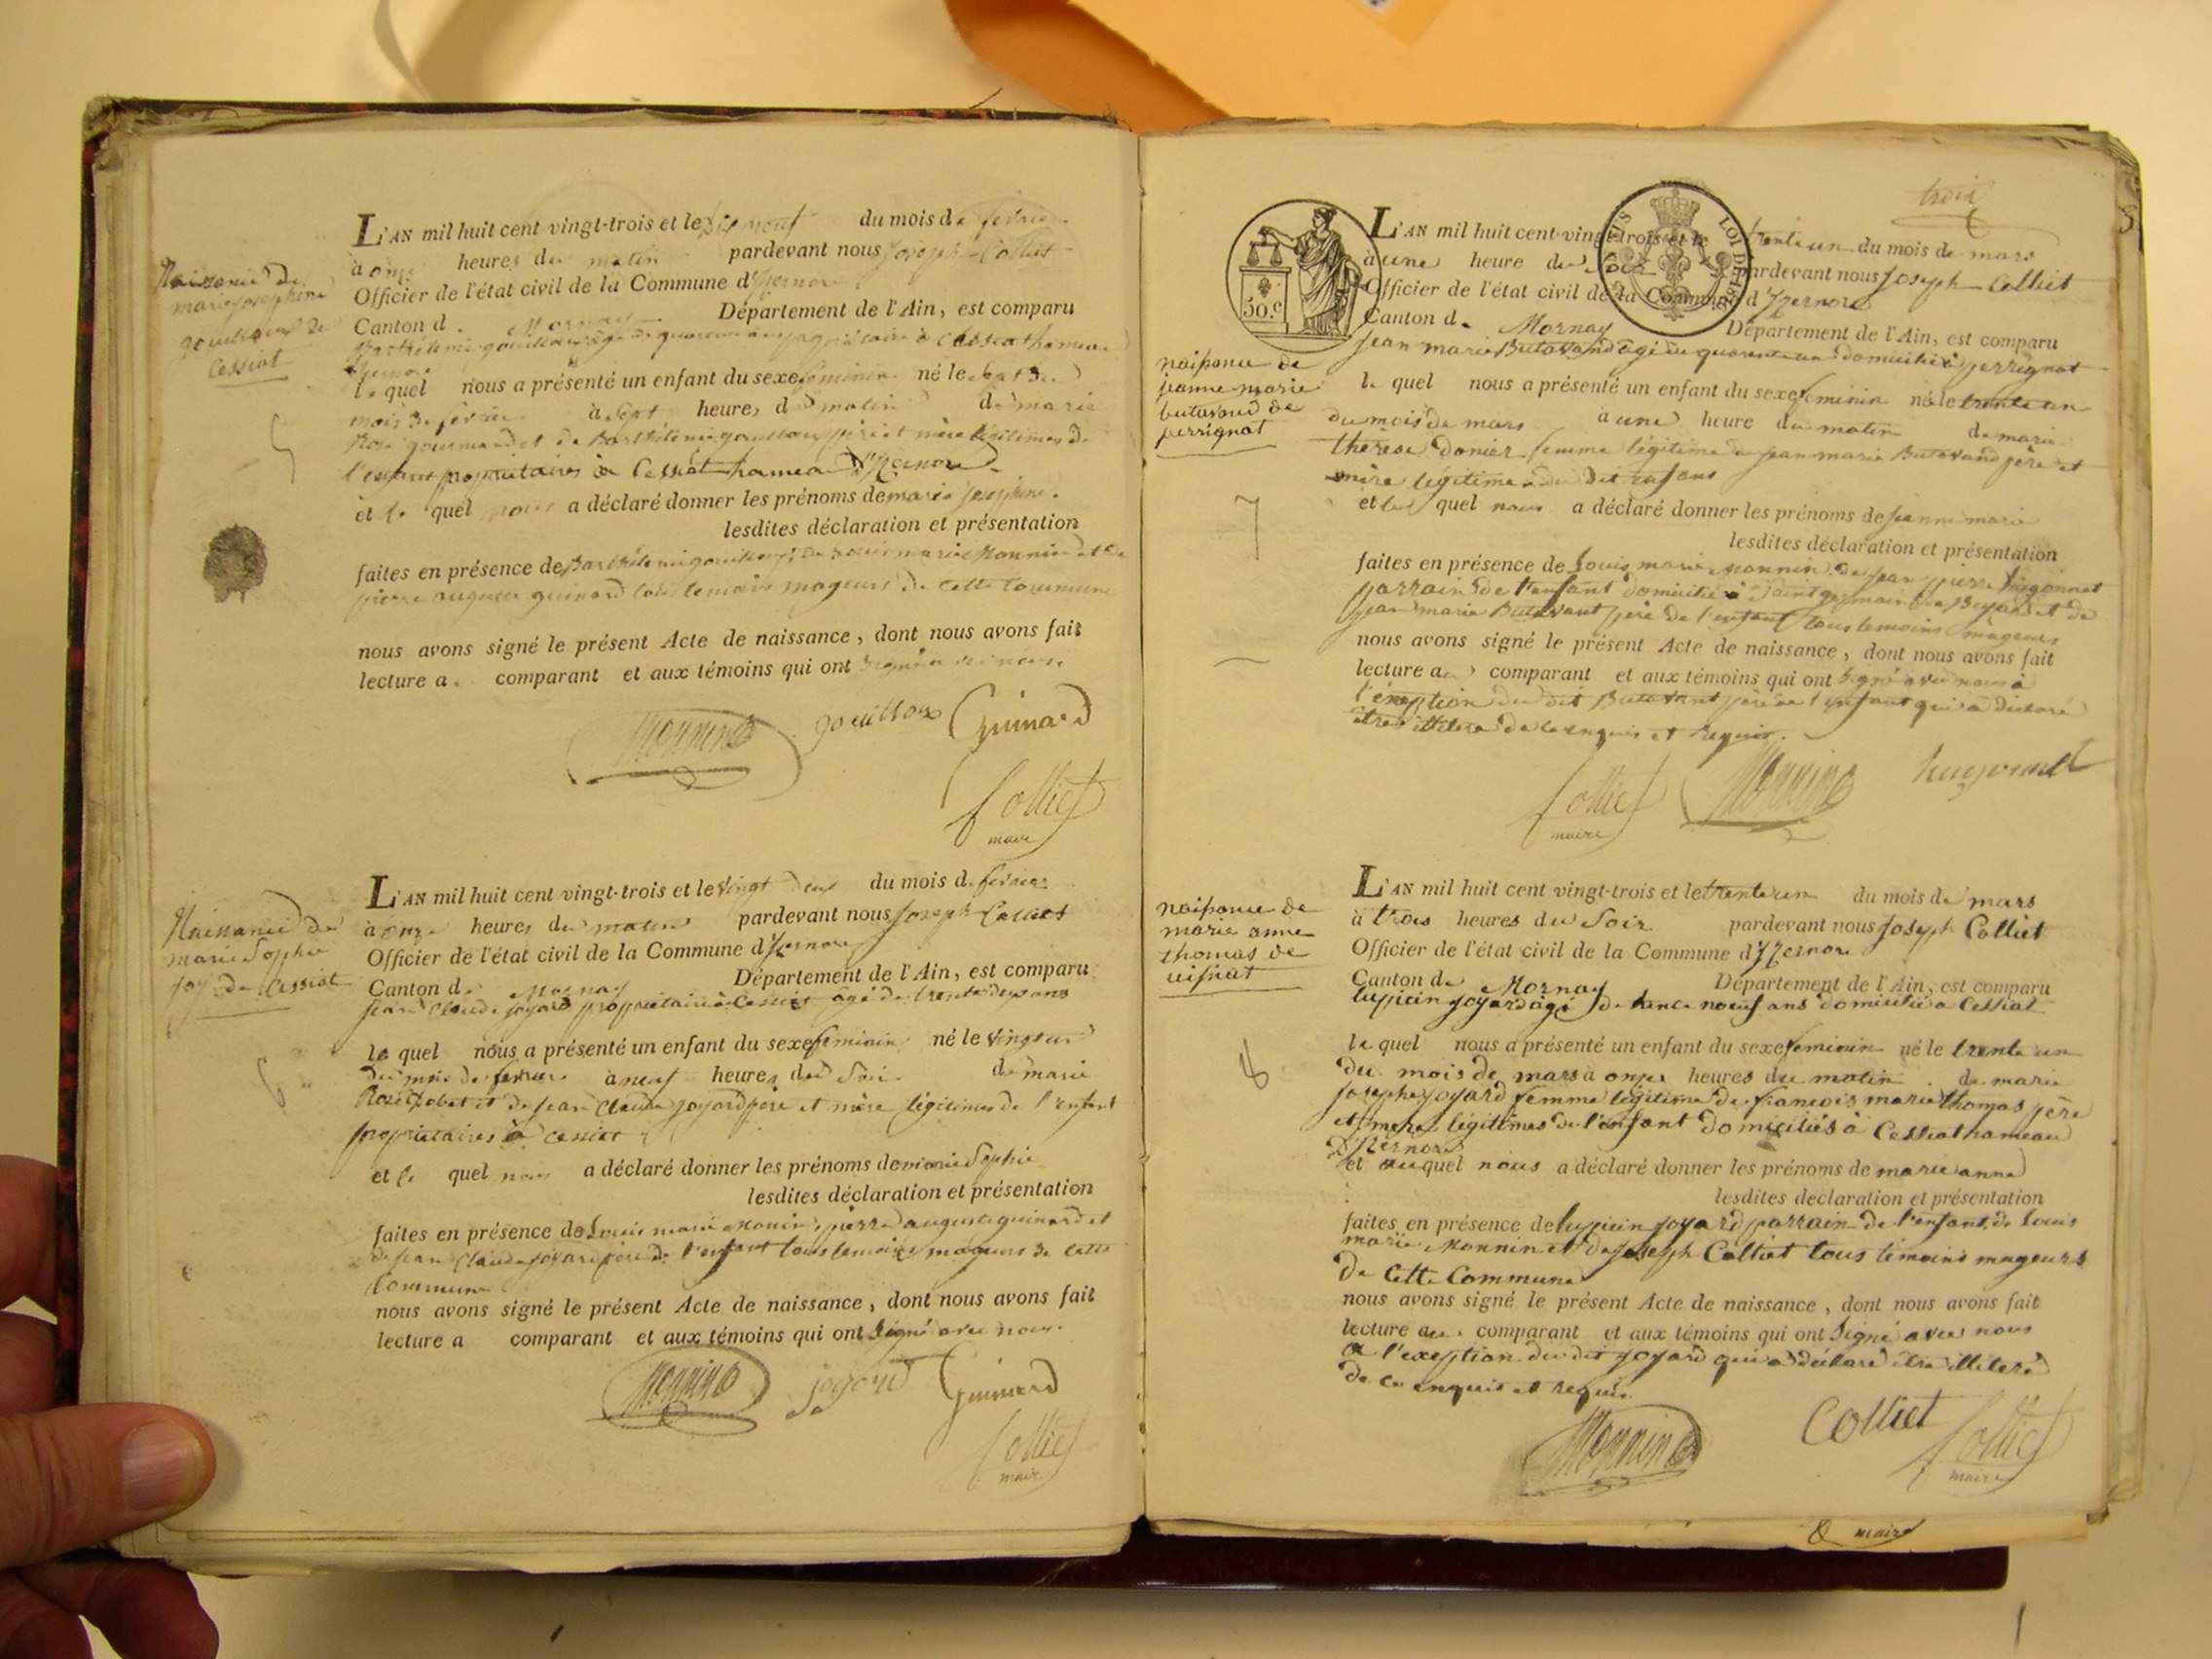 L'AN mil huit cent vingt-trois et le dix neuf du mois de fevrier
à onze heures du matin pardevant nous Joseph Colliet
Officier de l'état civil de la Commune d'Yzernore
Canton de Mornay Département de l'Ain, est comparu
Barthélemi gouilloux propriétaire à Cessiat hameau
d'yzernore
le quel nous a présenté un enfant du sexe féminin né le
mois de février à sept heures du matin de marie
Rose gourmand et de Barthélemi gouilloux père et mère légitimes de
l'enfant propriétaires à Cessiat hameau d'Yzernore
et le quel nous a déclaré donner les prénoms de marie josephine
lesdites déclaration et présentation
faites en présence de Barthélemi gouilloux, de Louis marie Monnin et de
pierre auguste guinard tous temoins mageurs de cette Commune
nous avons signé le présent Acte de naissance, dont nous avons fait
lecture au comparant et aux témoins qui ont signé avec nous
Monnin gouilloux Guinard
Colliet
maire
Naissance de
marie josephine
gouilloux de
Cessiat
5
L'AN mil huit cent vingt-trois et le vingt deux du mois de fevrier
à onze heures du matin pardevant nous Joseph Colliet
Officier de l'état civil de la Commune d'Yzernore
Canton de Mornay Département de l'Ain, est comparu
jean Claude joyard propriétaire à Cessiat âgé de trente deux ans
le quel nous a présenté un enfant du sexe feminin né le vingt un
du mois de fevrier à neuf heures du Soir de marie
Rose et de jean Claude joyard père et mère légitimes de l'enfant
propriétaires à Cessiat
et le quel nous a déclaré donner les prénoms de marie Sophie
lesdites déclaration et présentation
faites en présence de Louis marie Monnin, pierre auguste guinard et
de jean Claude joyard père de l'enfant tous temoins mageurs de cette
Commune
nous avons signé le présent Acte de naissance, dont nous avons fait
lecture a comparant et aux témoins qui ont Signé avec nous
Monnin joyard Guinard
Colliet
maire
Naissance de
marie Sophie
joyard de Cessiat
6
trois
5
50.c
LOI DE
L'AN mil huit cent vingt-trois et le trente un du mois de mars
à une heure du Soir pardevant nous Joseph Colliet
Officier de l'état civil de la Commune d'Yzernore
Canton de Mornay Département de l'Ain, est comparu
Jean marie Butavand âgé de quarante un domicilié à perrignat
le quel nous a présenté un enfant du sexe feminin né le trente un
du mois de mars à une heure du matin de marie
therèse Donier femme légitime de jean marie Butavand père et
mère légitime du dit enfant
et le quel nous a déclaré donner les prénoms de jeanne marie
lesdites déclaration et présentation
faites en présence de Louis marie Monnin, de jean pierre
parrain de l'enfant domicilié à Saint germain de Beyard et de
jean marie Butavant père de l'enfant tous temoins mageurs
nous avons signé le présent Acte de naissance, dont nous avons fait
lecture au comparant et aux témoins qui ont Signé avec nous à
l'exeption du dit Butavant père de l'enfant qui a déclaré
être illiteré de ce enquis et requis.
Colliet Monnin
maire
naissance de
jeanne marie
butavand de
perrignat
7
L'AN mil huit cent vingt-trois et le trente un du mois de mars
à trois heures du Soir pardevant nous Joseph Colliet
Officier de l'état civil de la Commune d'Yzernore
Canton de Mornay Département de l'Ain, est comparu
lupicin joyard âgé de trente neuf ans domicilié à Cessiat
le quel nous a présenté un enfant du sexe feminin né le trente un
du mois de mars à onze heures du matin de marie
josephe joyard femme légitime de francois marie thomas père
et mere légitimes de l'enfant domiciliés à Cessiat hameau
d'Yzernore
et au quel nous a déclaré donner les prénoms de marie anne
lesdites déclaration et présentation
faites en présence de lupicin joyard parrain de l'enfant, de louis
marie Monnin et de joseph Colliet tous témoins mageurs
de cette Commune
nous avons signé le présent Acte de naissance, dont nous avons fait
lecture au comparant et aux témoins qui ont Signé avec nous
à l'exeption du dit joyard qui a déclaré être illiteré
de ce enquis et requis.
Monnin Colliet Colliet
maire
naissance de
marie anne
thomas de
8
& maire